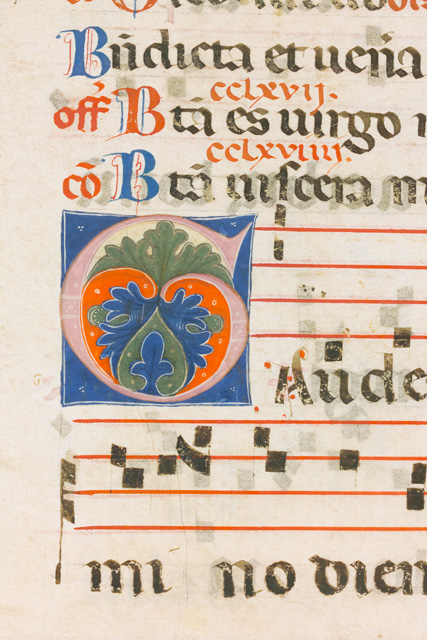 Bñdicta et ueña
cclxvij.
off̄ B tā es uirgo
cclxviiij.
cō B tā uiscera m
G Aude
mi no dien